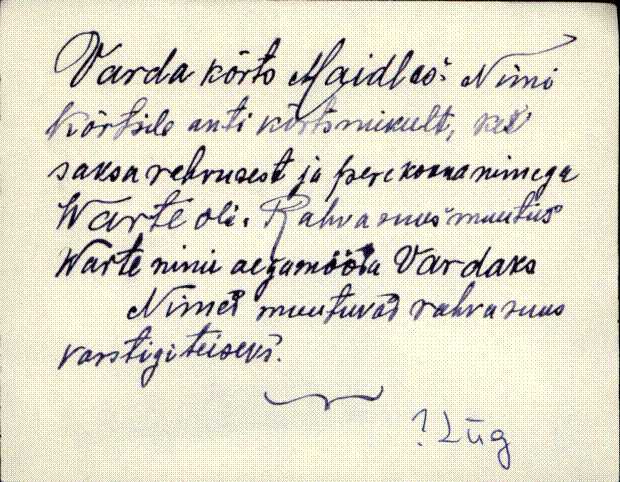 Varda kõrts Maidlas. Nimi
kõrtsile anti kõrtsmikult, kes
saksa rahvusest ja perekonnanimega
Warte oli. Rahvasuus muutus
Warte nimi aegamööda Vardaks
Nimed muutuvad rahvasuus
varstigi teiseks.
? Lüg